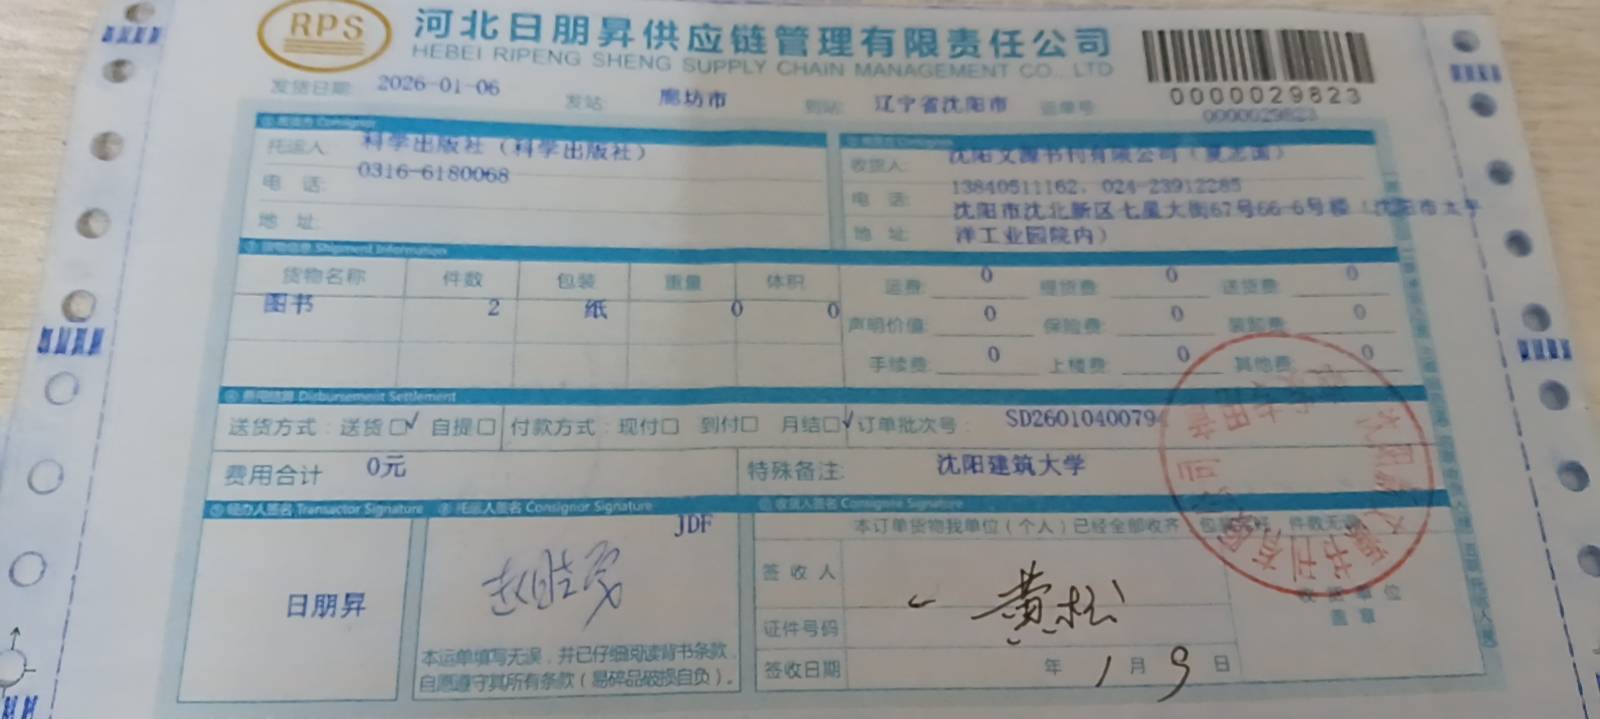 RPS
河北日朋昇供应链管理有限责任公司
HEBEI RIPENG SHENG SUPPLY CHAIN MANAGEMENT CO., LTD
0000029823
发货日期: 2026-01-06 发站: 廊坊市 到站: 辽宁省沈阳市 运单号: 0000029823
托运人: 科学出版社（科学出版社）
电 话: 0316-6180068
地 址:
收货人: 沈阳文源书刊有限公司
电 话: 13840511162, 024-23912285
地 址: 沈阳市沈北新区七星大街67号66-6号楼（沈阳市太平
洋工业园院内）
货物信息 Shipment Information
货物名称 件数 包装 重量 体积
图书 2 纸 0 0
运费: 0 提货费: 0 送货费: 0
声明价值: 0 保险费: 0 装卸费: 0
手续费: 0 上楼费: 0 其他费: 0
④ 费用结算 Disbursement Settlement
送货方式: 送货☐✓ 自提☐ 付款方式: 现付☐ 到付☐ 月结☐✓ 订单批次号: SD2601040079
费用合计 0元 特殊备注: 沈阳建筑大学
⑤ 经办人签名 Transactor Signature
托运人签名 Consignor Signature
收货人签名 Consignee Signature
日朋昇
JDF
本运单填写无误，并已仔细阅读背书条款，
自愿遵守其所有条款（易碎品破损自负）。
本订单货物我单位（个人）已经全部收齐 包装完好 件数无误
签 收 人 黄松
证件号码
签收日期 年 1 月 9 日
收货单位
盖 章